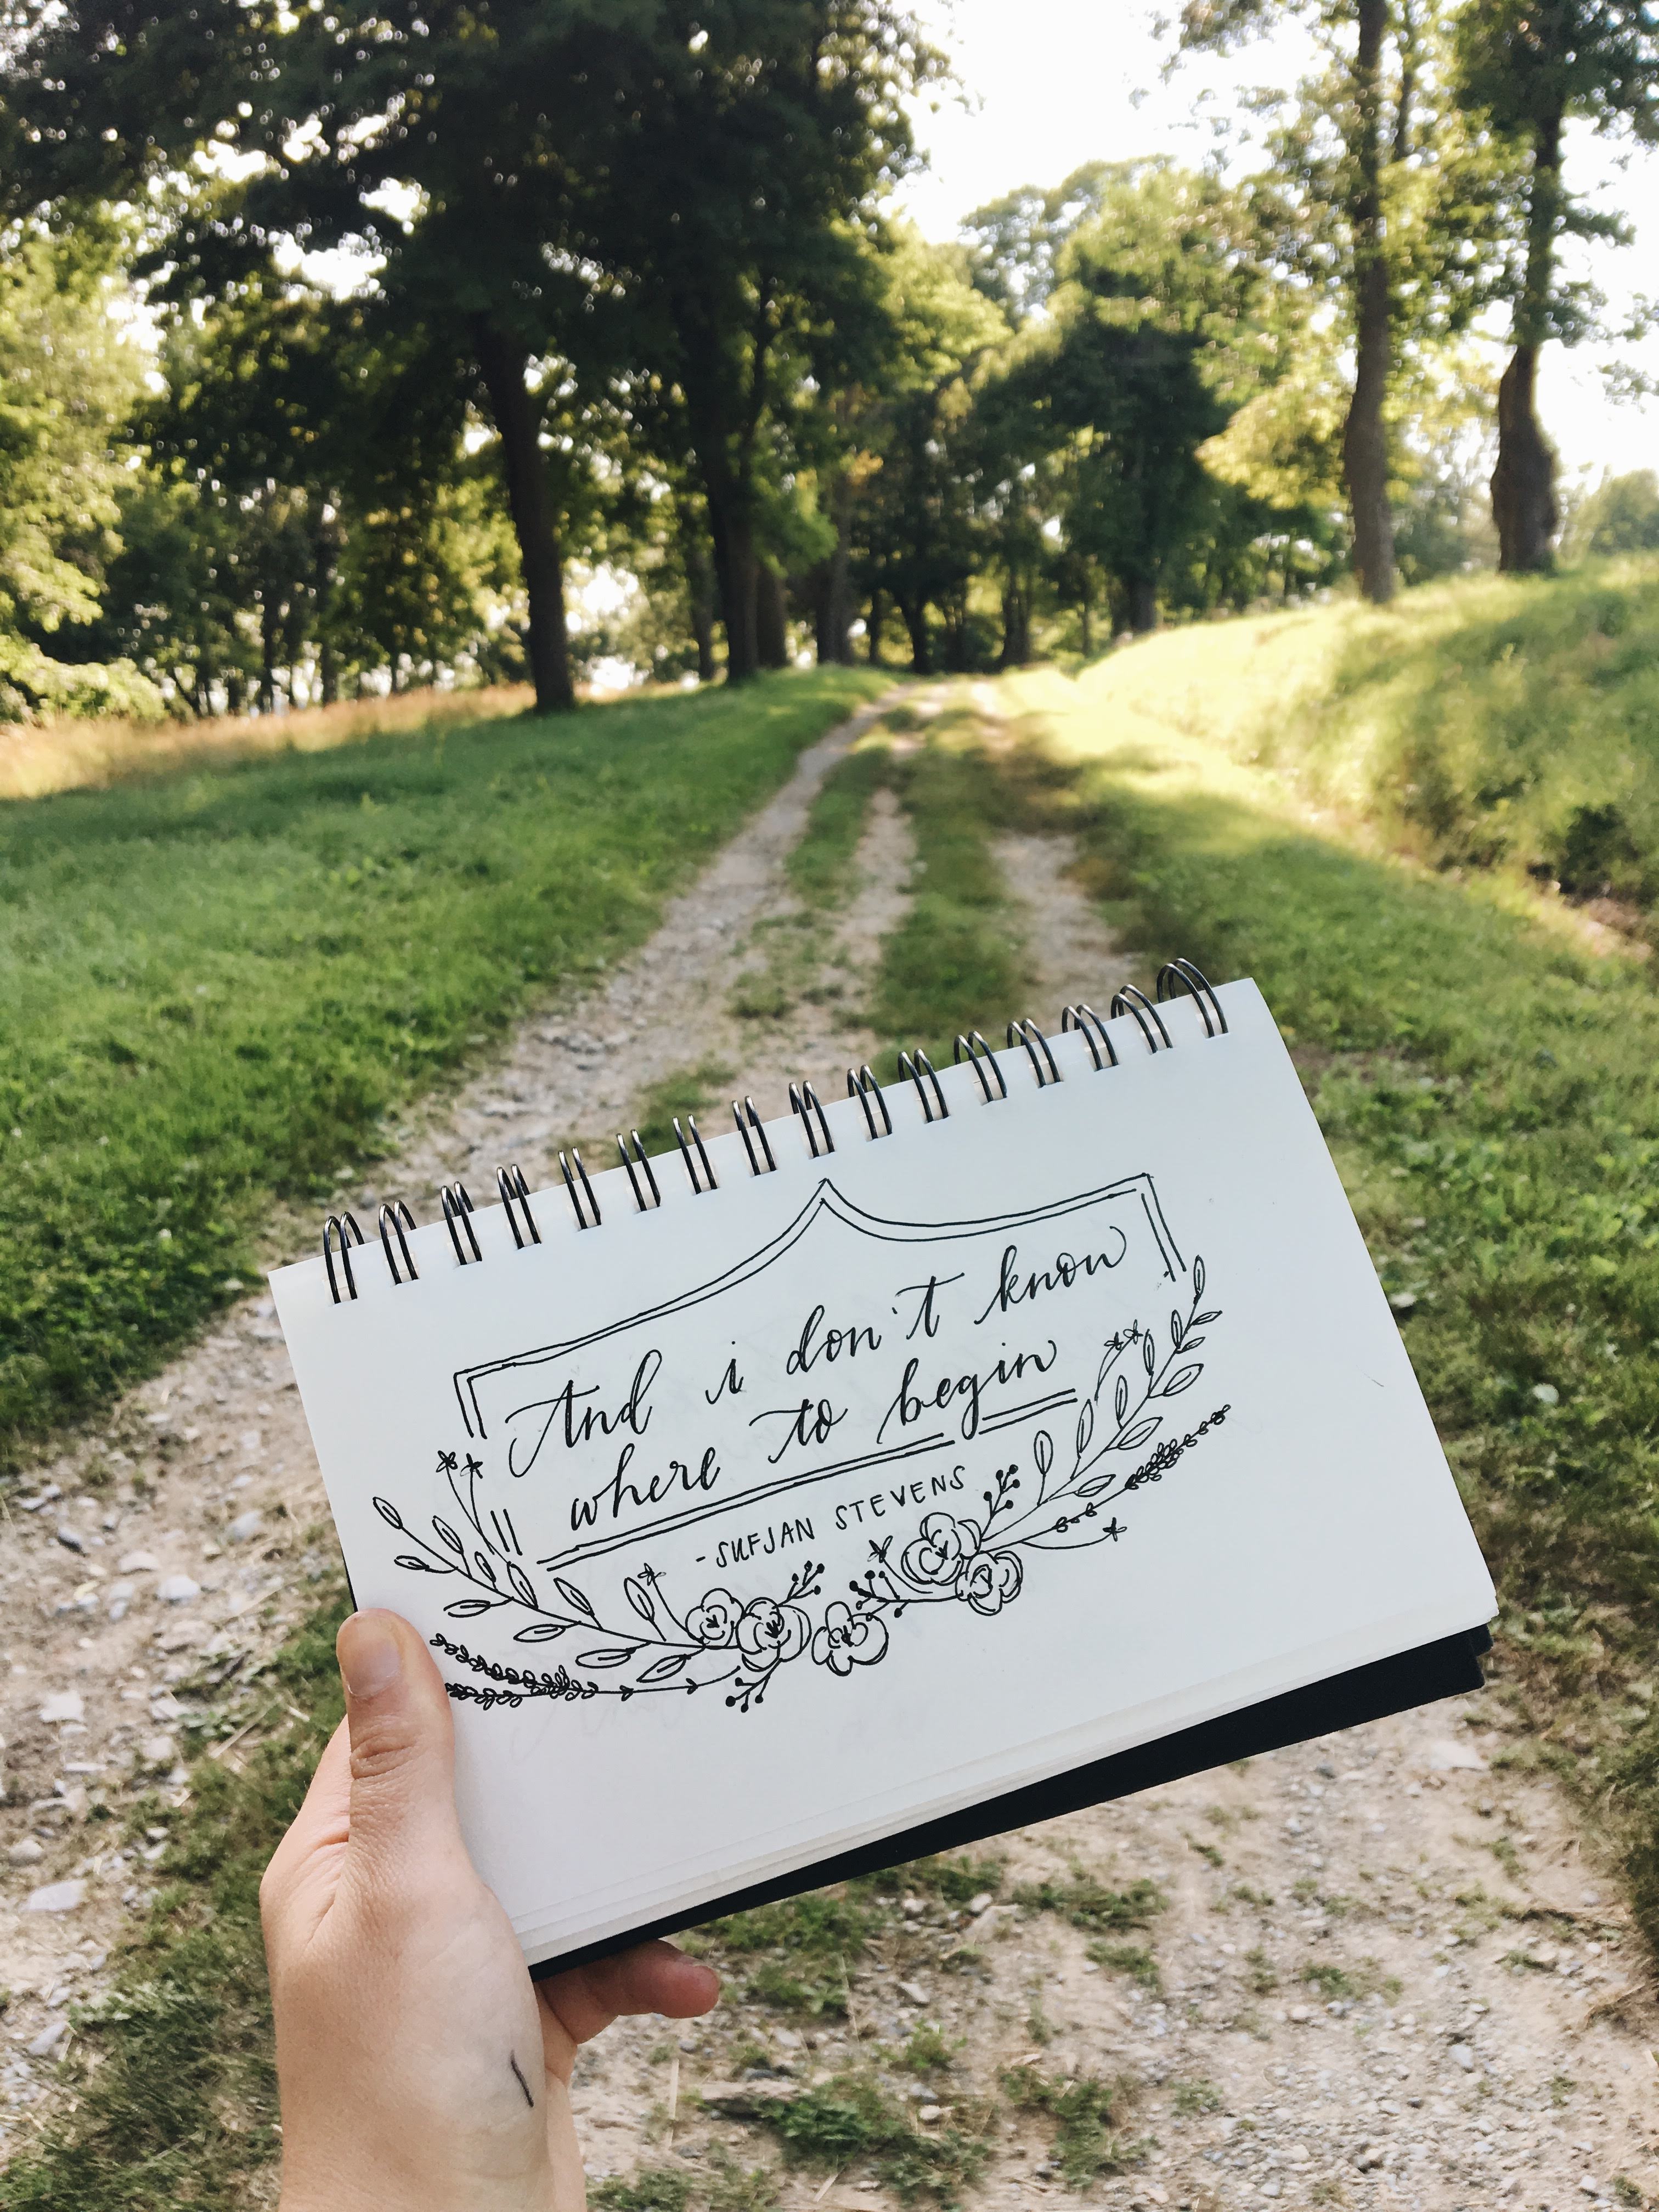 And i don't know
where to begin
-SUFJAN STEVENS